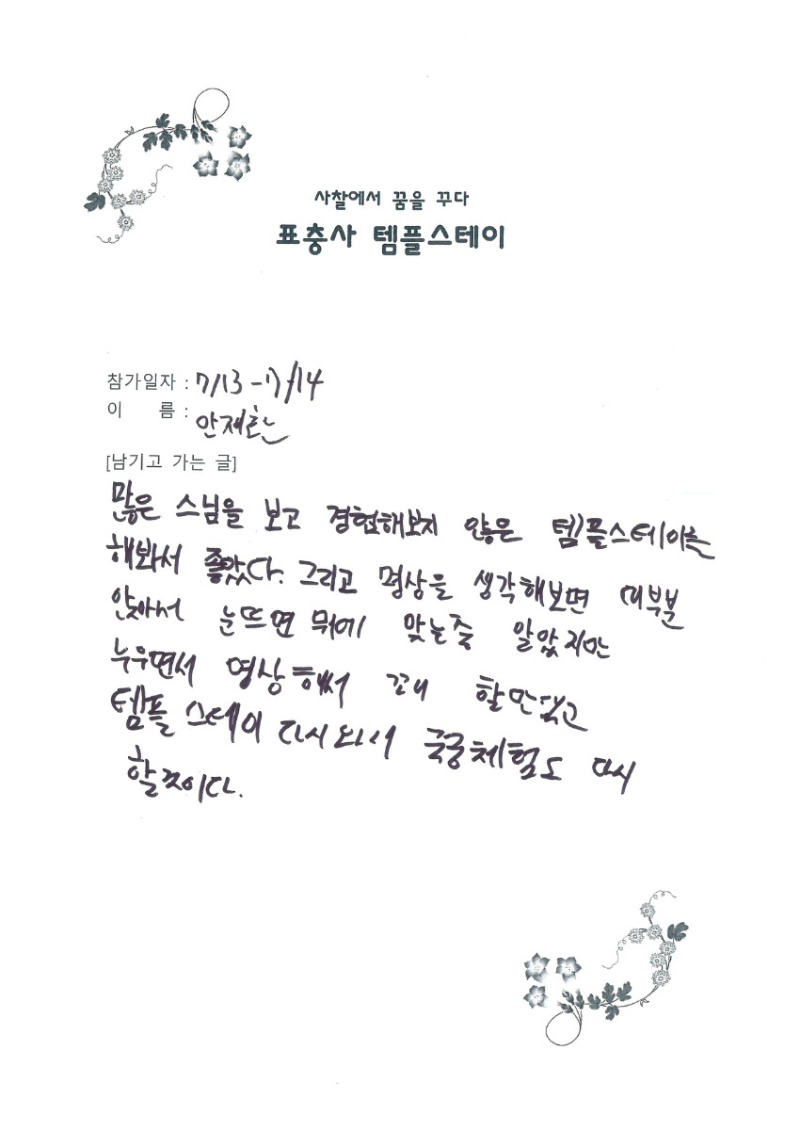 사찰에서 꿈을 꾸다
표충사 템플스테이
참가일자 : 7/13 - 7/14
이 름 : 안재한
[남기고 가는 글]
많은 스님을 보고 경험해보지 않은 템플스테이를
해봐서 좋았다. 그리고 명상을 생각해보면 대부분
앉아서 눈뜨면 뭐에 맞는줄 알았지만
누우면서 명상해써 꼬내 할만했고
템플 스테이 다시와서 국궁체험도 다시
할것이다.